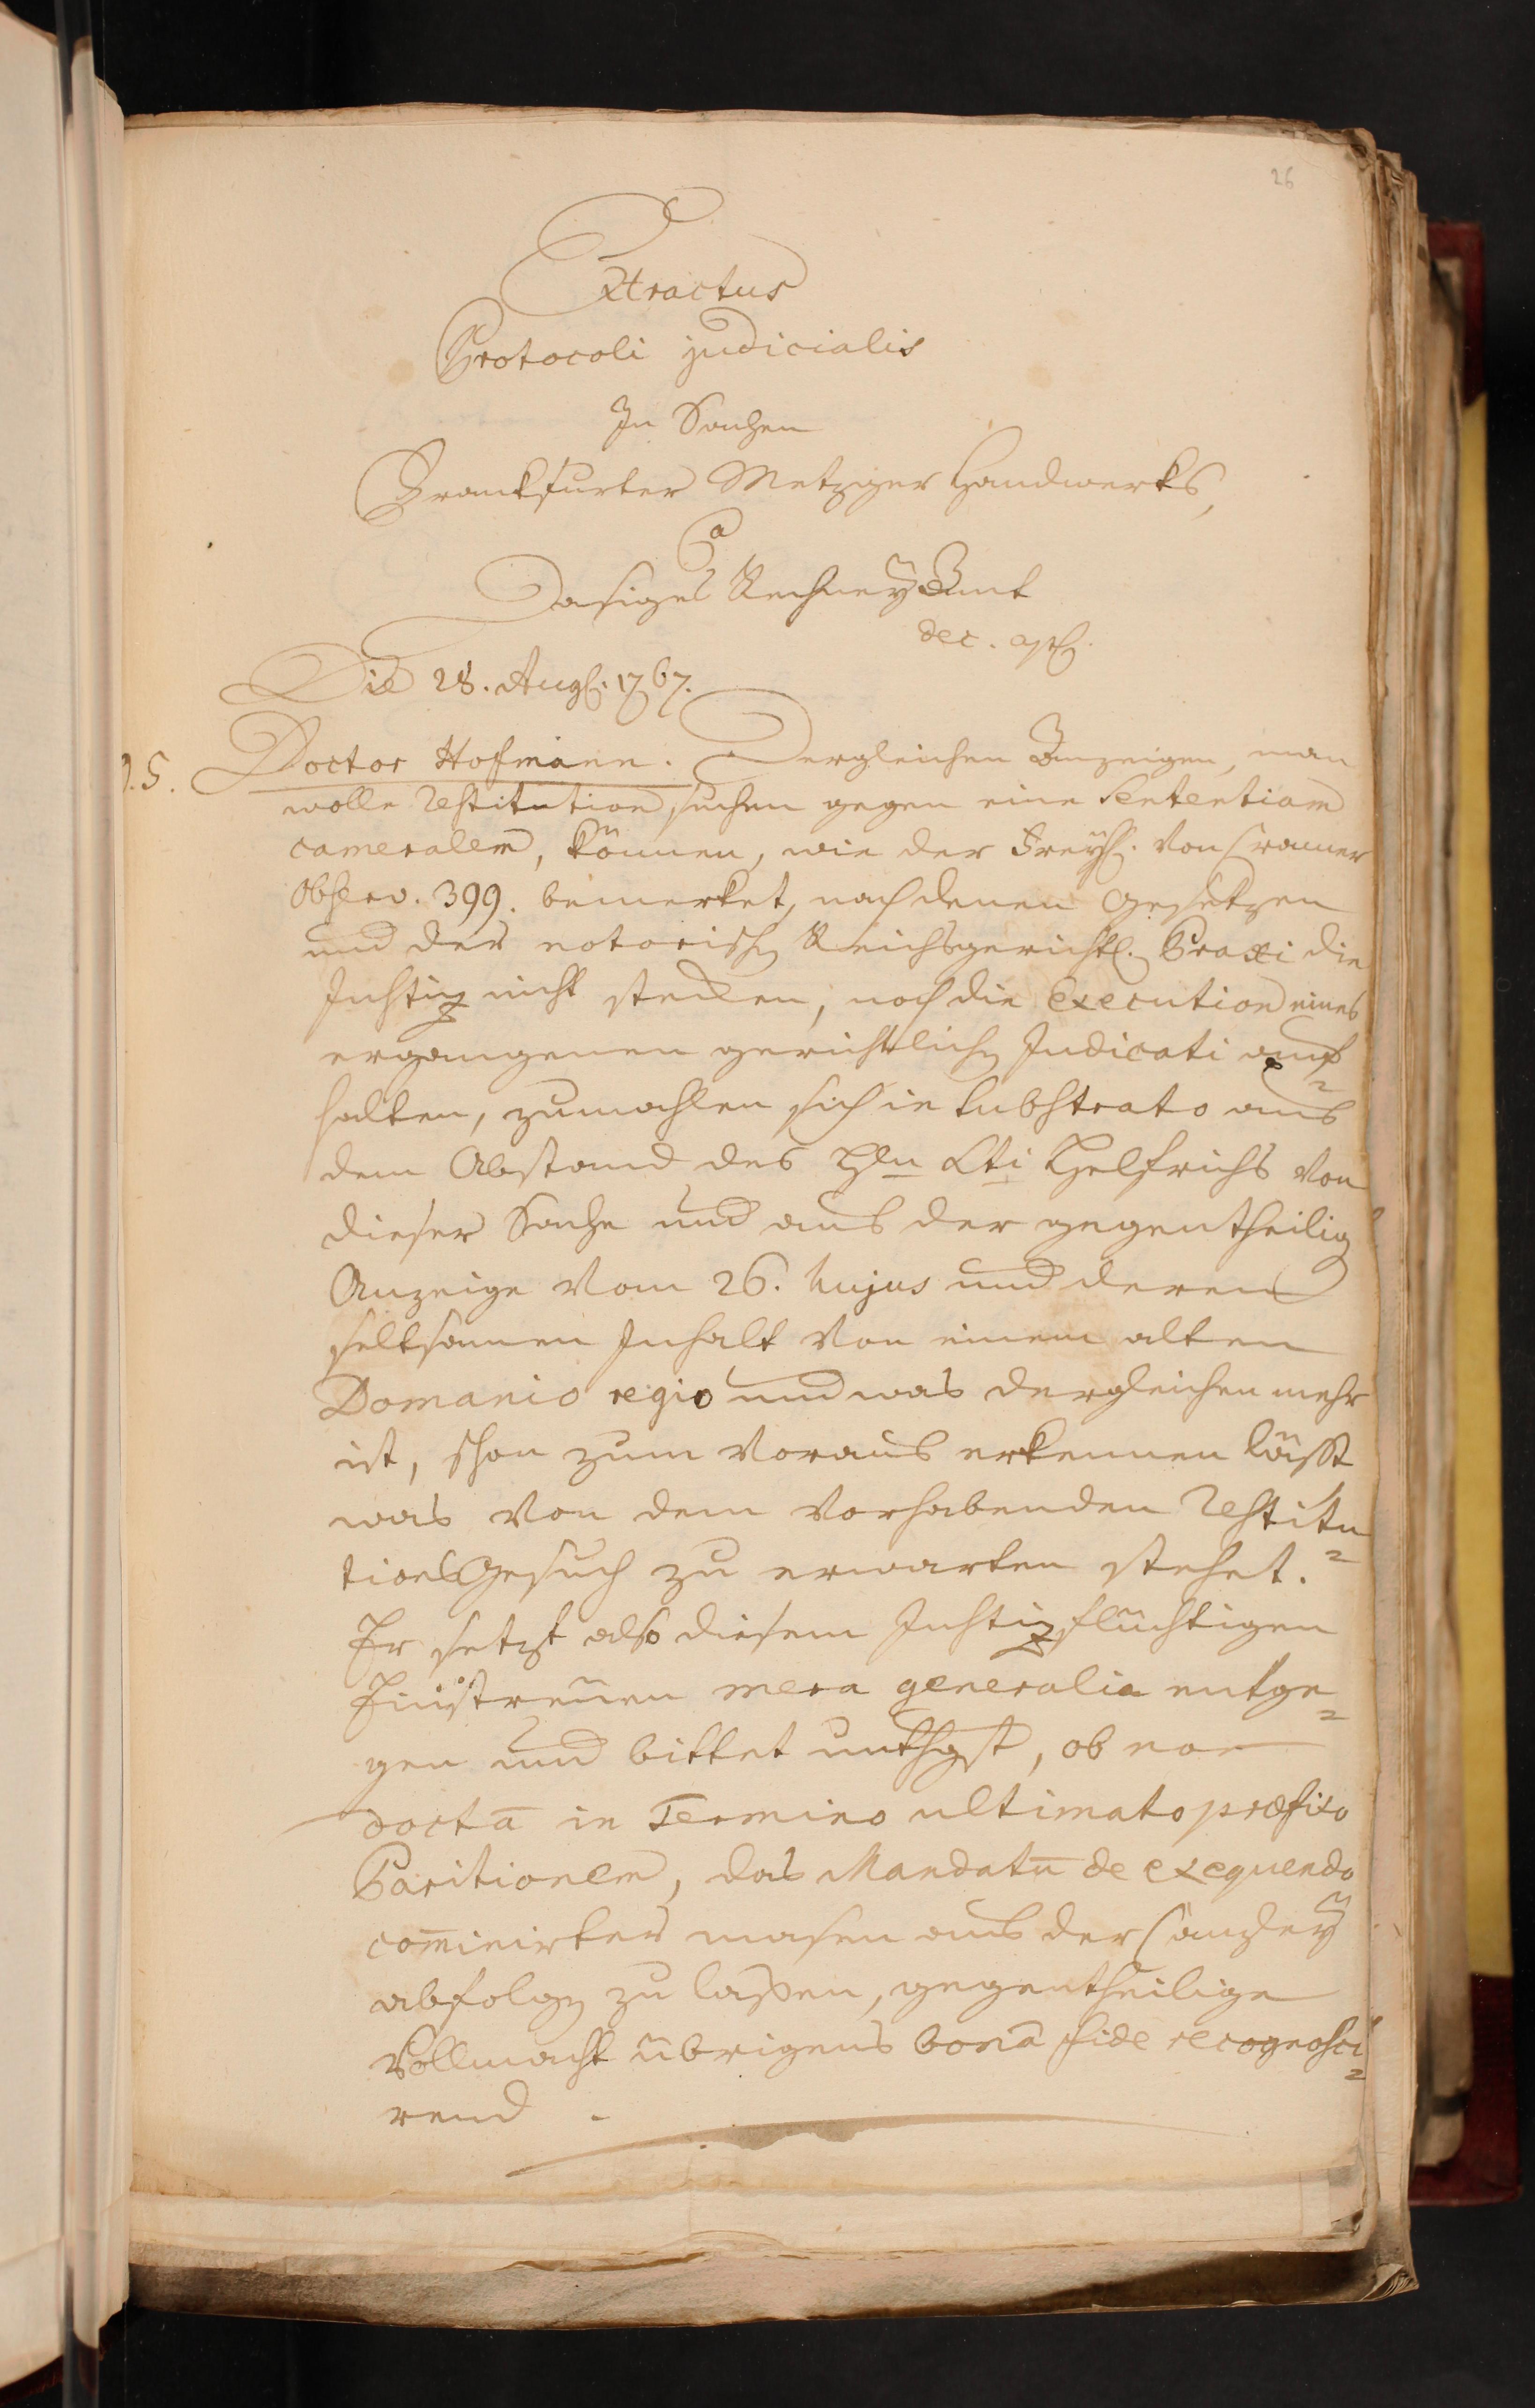 26
Extractus
Protocoli judicialis
In Sachen
Franckfurter Metzger Handwercks,
Ca
Dasiges Rechney Amt
Die 28. Aug. 1767.
Doctor Hofmann. Dergleichen Anzeigen, man
wolle Restitution suchen gegen eine Sententiam
cameralem, können, wie der Freyh. von Cramer
Observ. 399. bemerket, nach denen Gesetzen
und der notorischen Reichsgerichtl. Praxi die
Justiz nicht stecken, noch die Execution eines
ergangenen gerichtlichen Judicati auf-
halten, zumahlen sich in substrato aus
dem Abstand des Hln Lti Helfrichs von
dieser Sache und aus der gegentheilig
Anzeige vom 26. hujus und deren
seltsamen Inhalt von einem alten
Domanio regio und was dergleichen mehr
ist, schon zum Voraus erkennen läßt
was von dem vorhabenden Restitu-
tionsGesuch zu erwarten stehet.
Er setzt also diesem Justizflüchtigen
Einstreuen mera generalia entge-
gen und bittet unthgst, ob non
doctā in Termino ultimato præfixo
Paritionem, das Mandatū de exequendo
com̄inirter masen aus der Canzley
abfolgen zu lassen, gegentheilige
Vollmacht übrigens bonâ fide recognosci-
rend.